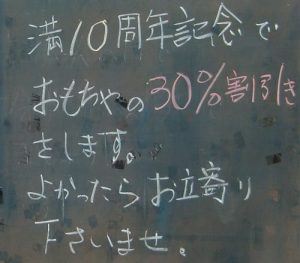 満10周年記念で
おもちゃの30%割引き
をします。
よかったらお立寄り
下さいませ。